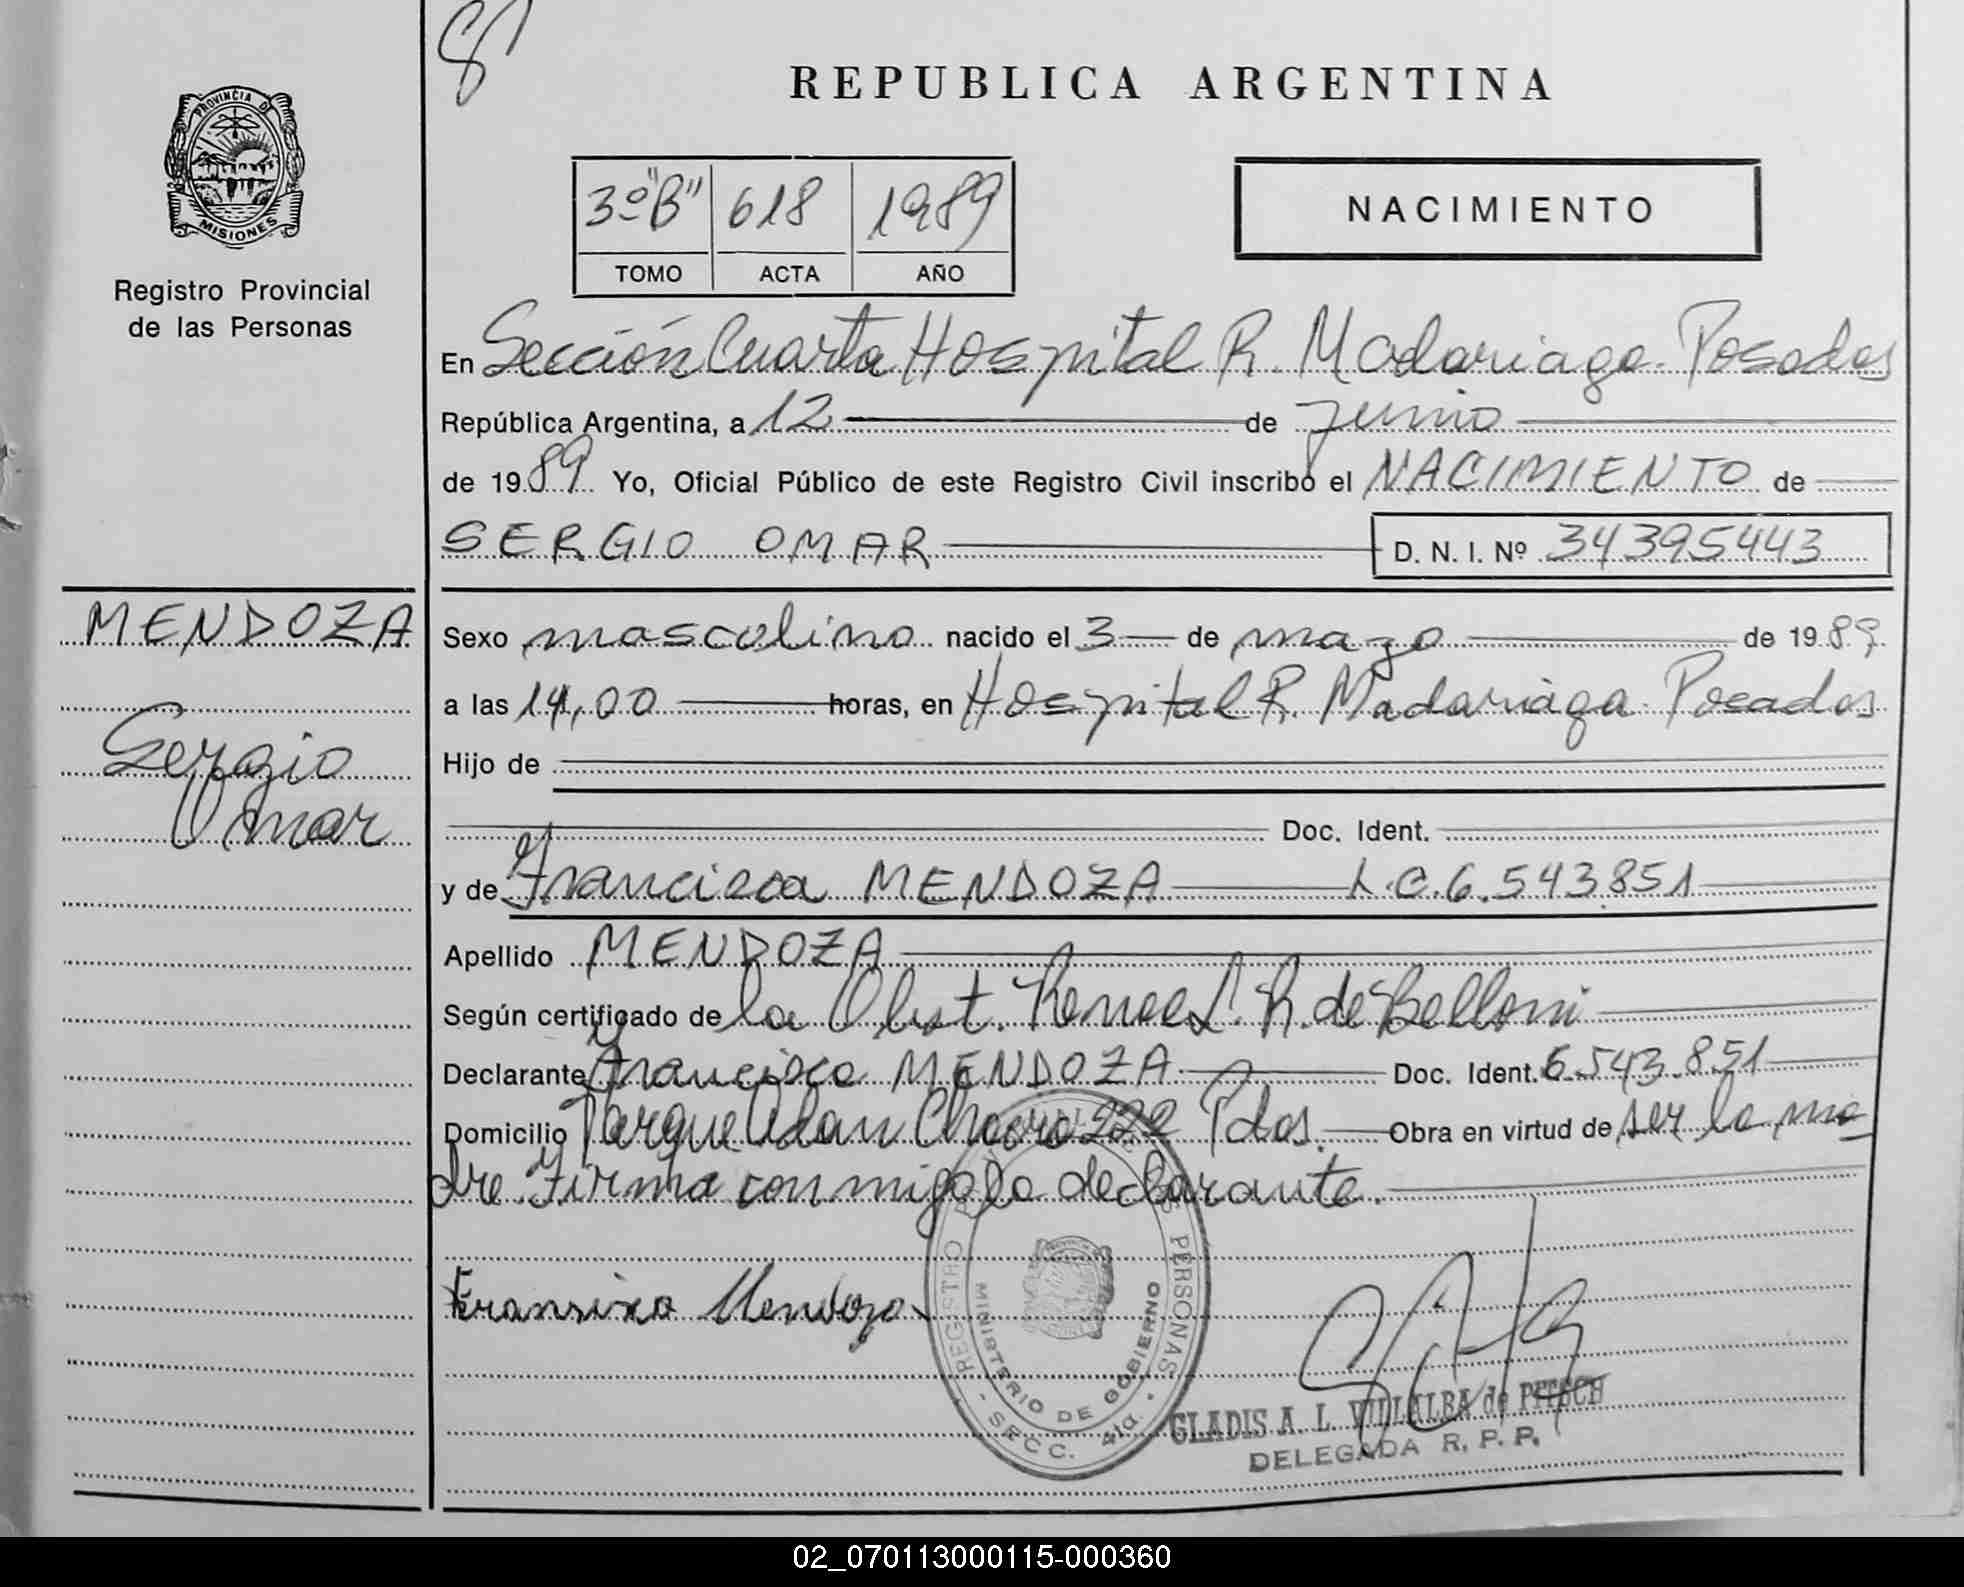 REPUBLICA ARGENTINA
PROVINCIA DE
MISIONES
Registro Provincial
de las Personas
3º "B" 618 1989
TOMO ACTA AÑO
NACIMIENTO
En Sección Cuarta Hospital R. Madariaga. Posadas
República Argentina, a 12 de junio
de 1989 Yo, Oficial Público de este Registro Civil inscribo el NACIMIENTO de
SERGIO OMAR D. N. I. Nº 34395443
MENDOZA
Sergio
Omar
Sexo mascolino nacido el 3 de mazo de 1989
a las 14,00 horas, en Hospital R. Madariaga. Posadas
Hijo de
Doc. Ident.
y de Francisca MENDOZA L.C.6.543.851
Apellido MENDOZA
Según certificado de la Obst. Renee L. R. de Belloni
Declarante Francisca MENDOZA Doc. Ident. 6.543.851
Domicilio Parque Adam 222 Pdas. Obra en virtud de ser la ma
dre. Firma conmigo la declarante.
Fransixa Mendoza
REGISTRO PERSONAS
MINISTERIO DE GOBIERNO
- SECC. 4ta. -
GLADIS A. L. VILLALBA de PITSCH
DELEGADA R. P. P.
02_070113000115-000360